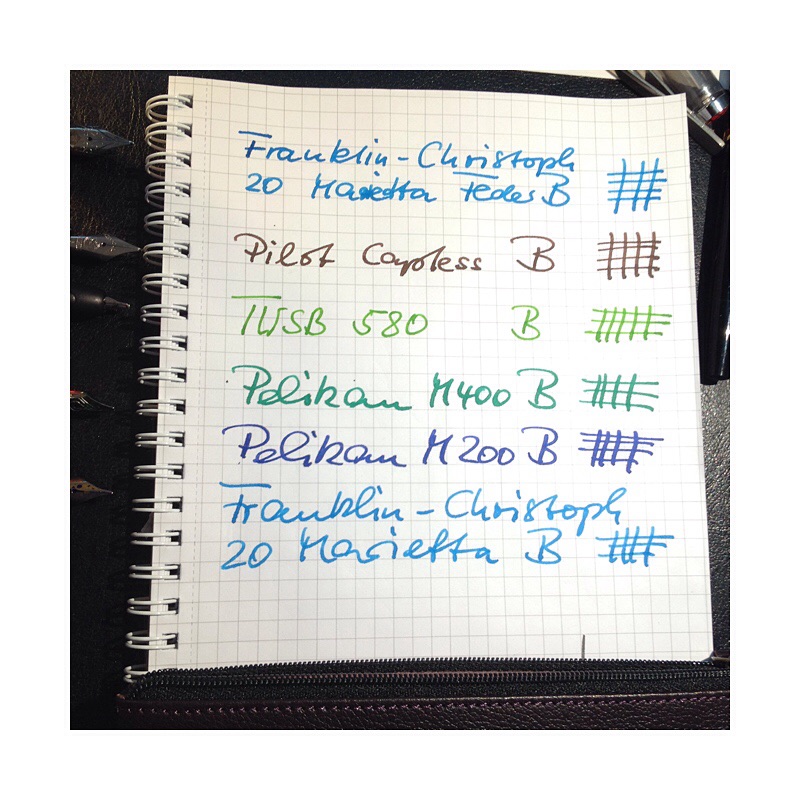 Franklin-Christoph
20 Marietta Feder B
Pilot Capless B
TWSB 580 B
Pelikan M400 B
Pelikan M200 B
Franklin-Christoph
20 Marietta B